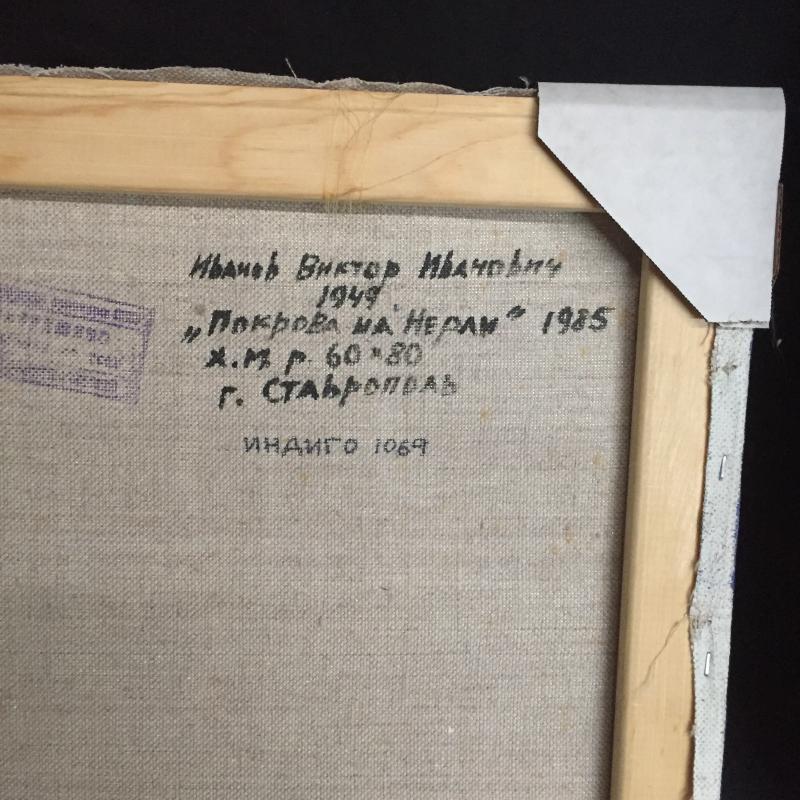 Иванов Виктор Иванович
1949
„Покрова на Нерли“ 1985
х.м. р. 60×80
г. Ставрополь
ИНДИГО 1069